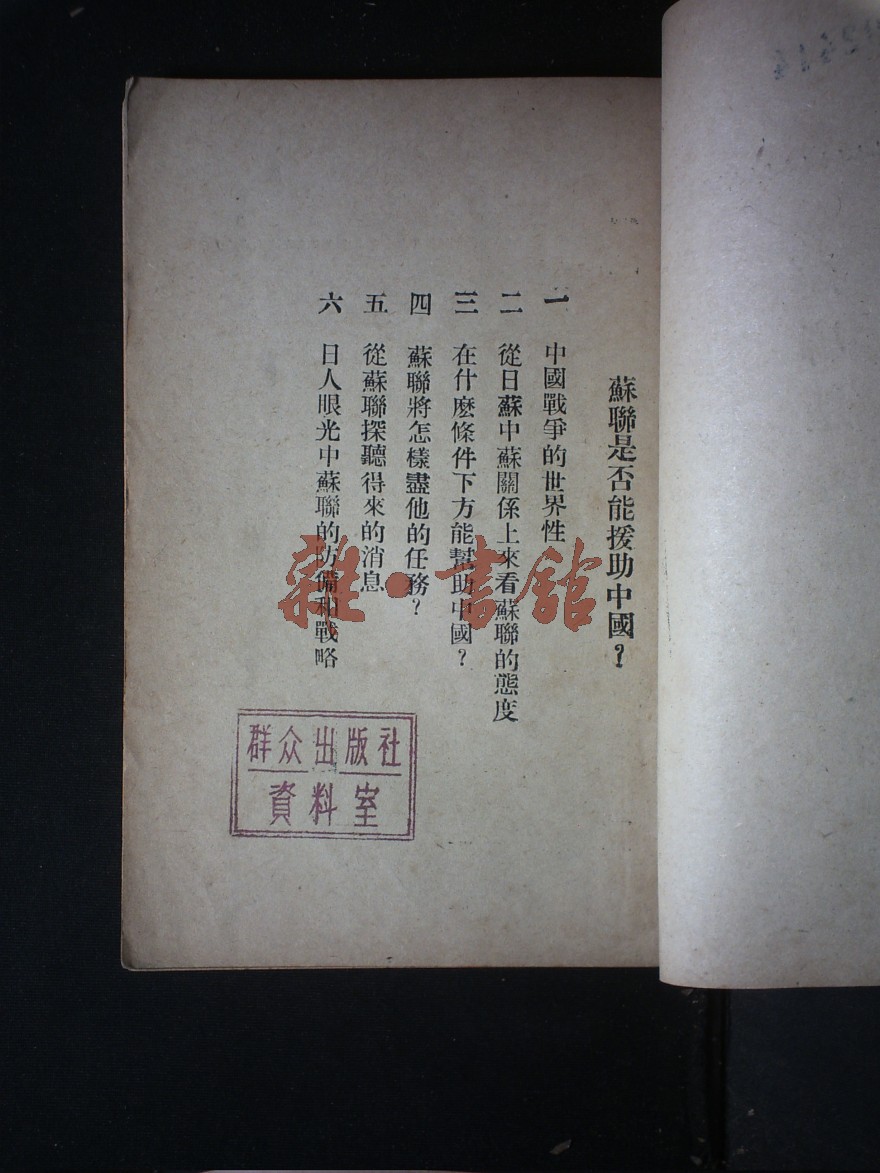 蘇聯是否能援助中國？
一 中國戰爭的世界性
二 從日蘇中蘇關係上來看蘇聯的態度
三 在什麽條件下方能幫助中國？
四 蘇聯將怎樣盡他的任務？
五 從蘇聯探聽得來的消息
六 日人眼光中蘇聯的防備和戰略
雜·書館
群众出版社
資料室